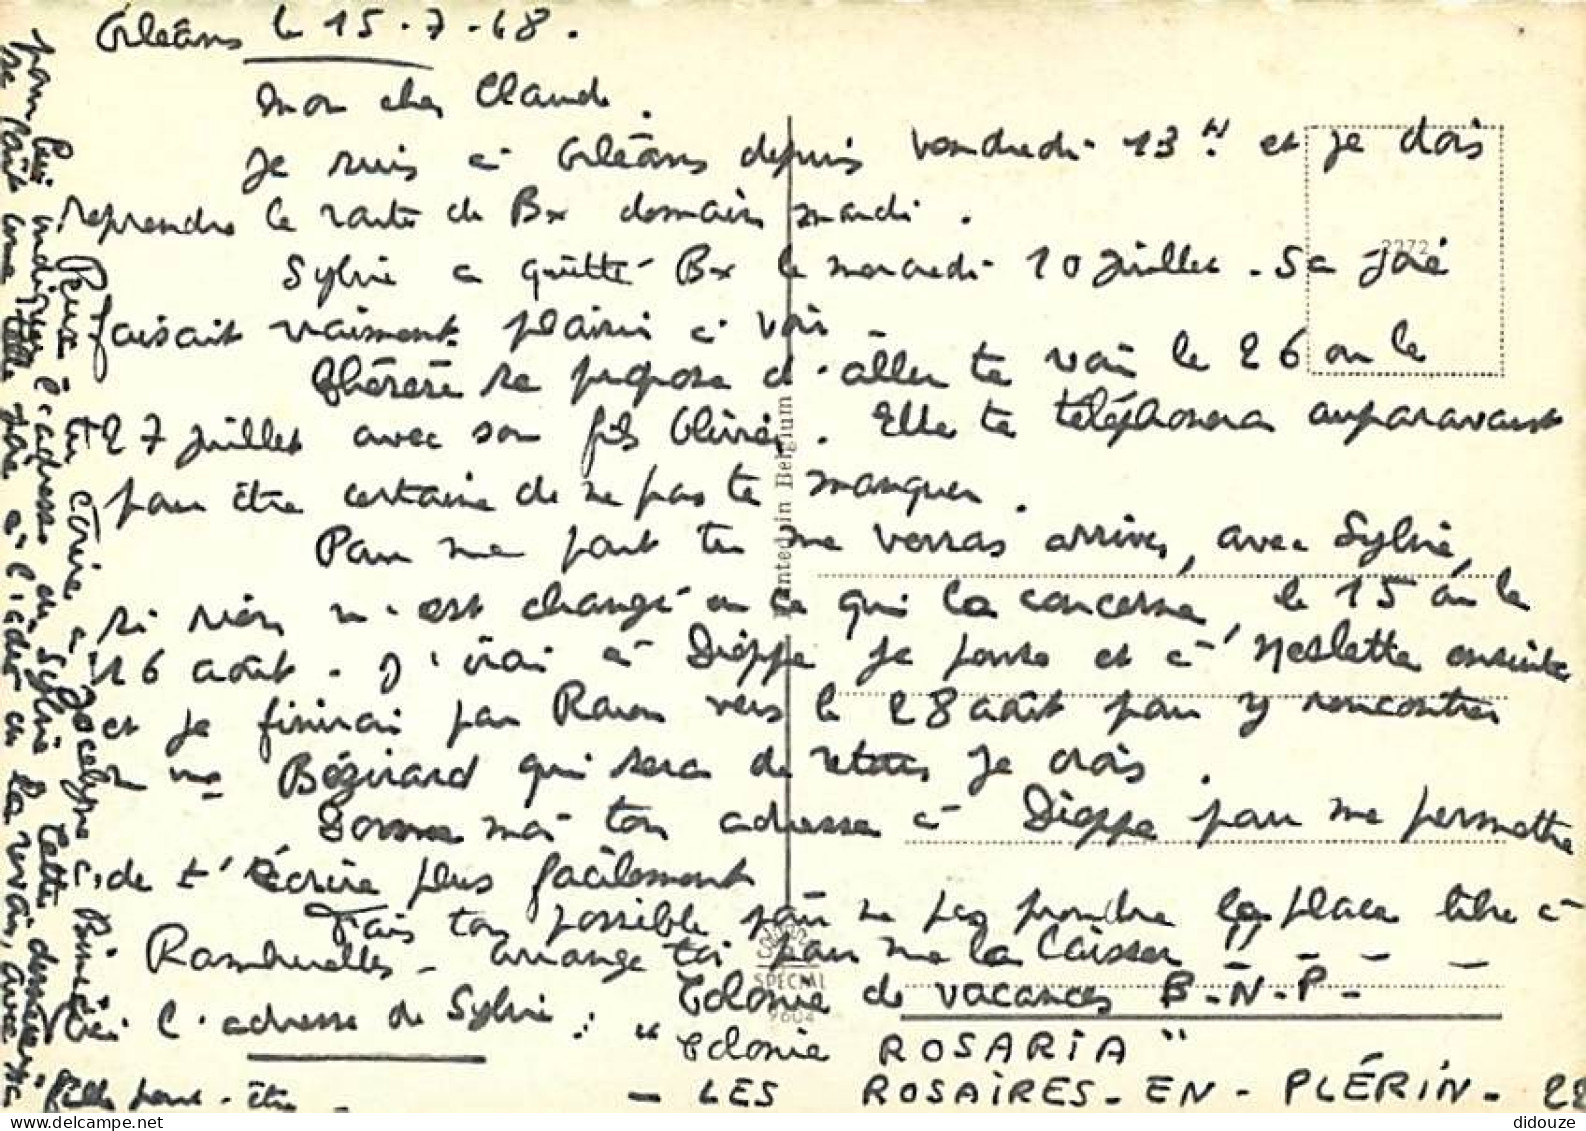 Orléans le 15.7.68.
Mon cher Claude.
Je suis à Orléans depuis vendredi 13 H. et je dois
reprendre la route de Bx demain mardi.
Sylvie a quitté Bx le mercredi 10 juillet. Sa joie
faisait vraiment plaisir à voir
Thérèse se propose d'aller te voir le 26 ou le
27 juillet avec son fils Olivier. Elle te téléphonera auparavant
pour être certaine de ne pas te manquer.
Pour ma part tu me verras arriver, avec Sylvie,
si rien n'est changé en ce qui la concerne, le 15 ou le
16 août. J'irai à Dieppe je pense et à Neslette ensuite
et je finirai par Rouen vers le 28 août pour y rencontrer
Bézirard qui sera de retour je crois.
Donne moi ton adresse à Dieppe pour me permettre
de t'écrire plus facilement
Fais ton possible pour ne pas prendre la place libre à
Rambuelles - arrange toi pour me la laisser !!
Voici l'adresse de Sylvie : Colonie de vacances B-N-P-
"Colonie ROSARIA"
- LES ROSAIRES-EN-PLÉRIN- 22
Peux tu écrire à Jocelyne à
pour lui indiquer l'adresse de Sylvie. Cette dernière
se fait une telle joie à l'idée de la revoir, avec sa
fille peut-être
Printed in Belgium
SPECIAL
9604
2272
didouze